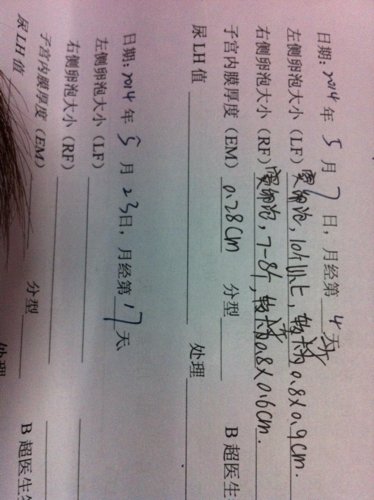 日期: 2014 年 5 月 7 日, 月经第 4 天
左侧卵泡大小（LF）窦卵泡, 10个以上, 0.8×0.9cm.
右侧卵泡大小（RF）窦卵泡, 7-8个, 0.8×0.6cm.
子宫内膜厚度（EM） 0.28cm 分型 B 超医生
尿 LH 值 处理
日期: 2014 年 5 月 23 日, 月经第 17 天
左侧卵泡大小（LF）
右侧卵泡大小（RF）
子宫内膜厚度（EM） 分型 B 超医生
尿 LH 值 处理